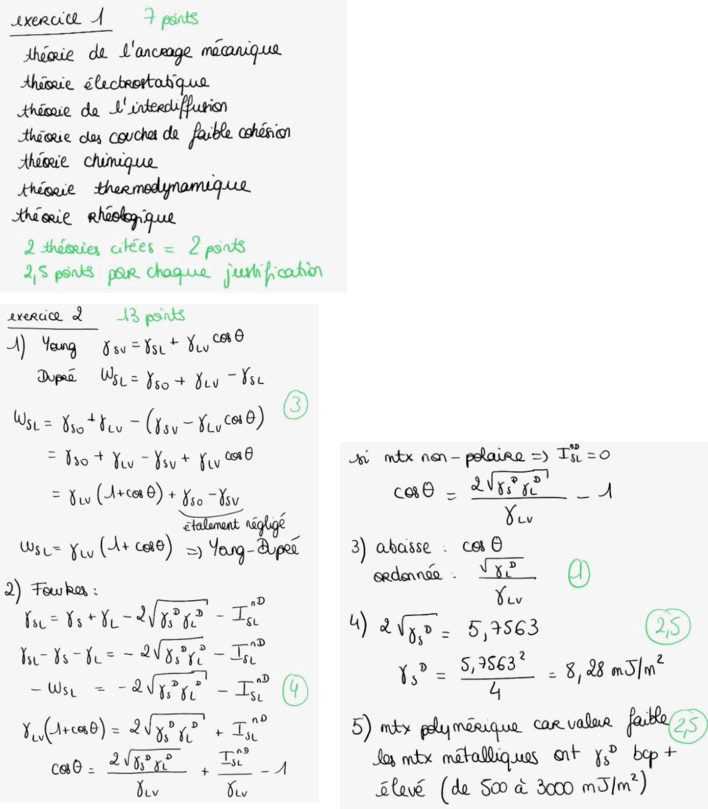 exercice 1 7 points
théorie de l'ancrage mécanique
théorie électrostatique
théorie de l'interdiffusion
théorie des couches de faible cohésion
théorie chimique
théorie thermodynamique
théorie rhéologique
2 théories citées = 2 points
2,5 points par chaque justification
exercice 2 13 points
1) Young γSV = γSL + γLV cosθ
Dupré WSL = γSO + γLV - γSL
③
WSL = γSO + γLV - (γSV - γLV cosθ)
= γSO + γLV - γSV + γLV cosθ
= γLV (1+cosθ) + γSO - γSV
étalement négligé
WSL = γLV (1+ cosθ) => Young-Dupré
2) Fowkes:
γSL = γS + γL - 2√(γS^D γL^D) - ISL^nD
γSL - γS - γL = - 2√(γS^D γL^D) - ISL^nD
- WSL = - 2√(γS^D γL^D) - ISL^nD ④
γLV (1+cosθ) = 2√(γS^D γL^D) + ISL^nD
cosθ = 2√(γS^D γL^D) / γLV + ISL^nD / γLV - 1
si mtx non-polaire => ISL^nD = 0
cosθ = 2√(γS^D γL^D) / γLV - 1
3) abaisse : cosθ
ordonnée : √(γL^D) / γLV ①
4) 2√(γS^D) = 5,7563 2,5
γS^D = 5,7563² / 4 = 8,28 mJ/m²
5) mtx polymérique car valeur faible 2,5
les mtx métalliques ont γS^D bcp +
élevé (de 500 à 3000 mJ/m²)